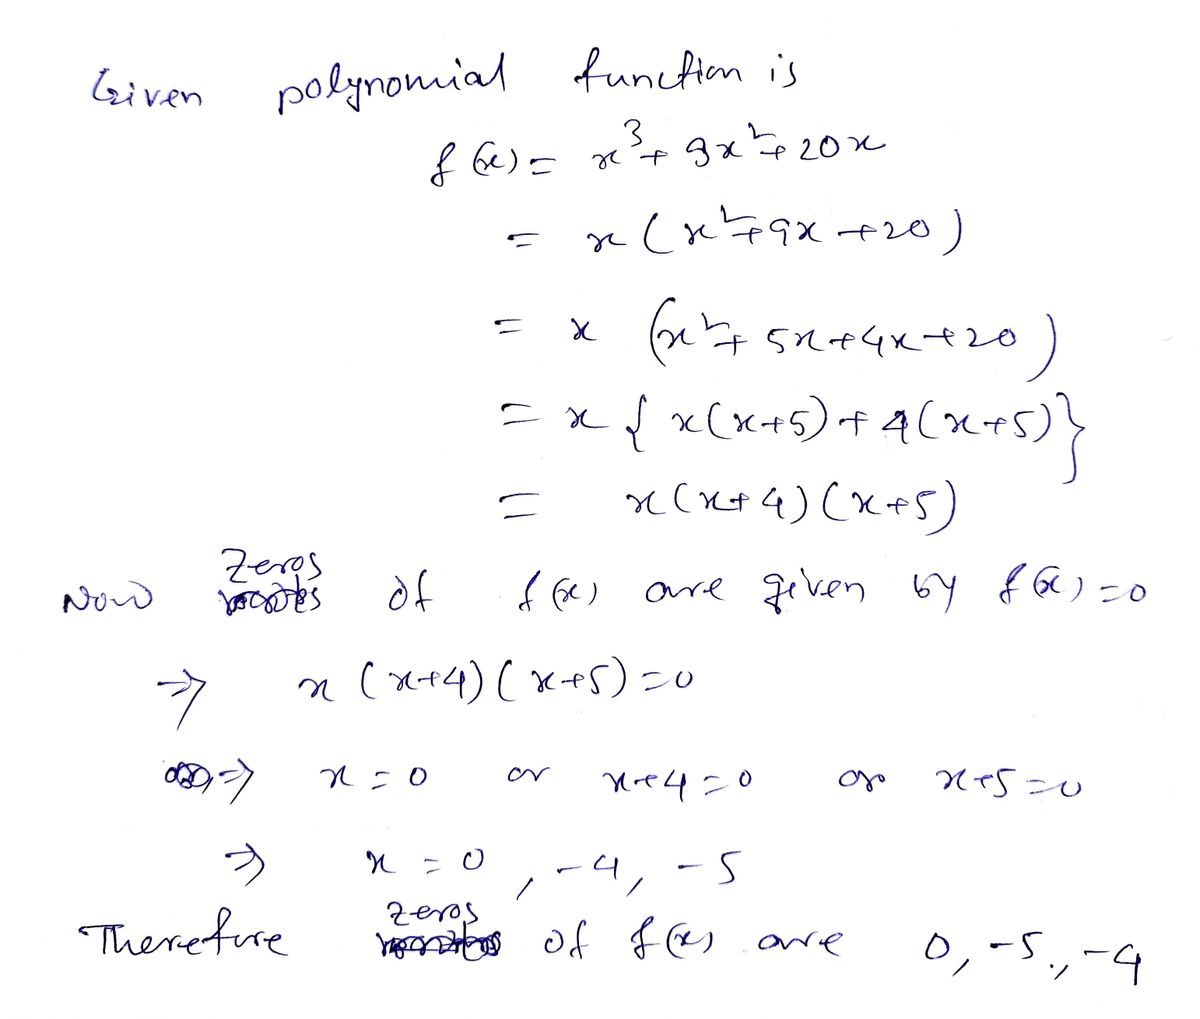 Given polynomial function is
f(x) = x³ + 9x² + 20x
= x (x² + 9x + 20)
= x (x² + 5x + 4x + 20)
= x { x(x+5) + 4(x+5)}
= x(x+4)(x+5)
Now zeros of f(x) are given by f(x) = 0
⇒ x (x+4)(x+5) = 0
⇒ x = 0 or x+4 = 0 or x+5 = 0
⇒ x = 0, -4, -5
Therefore zeros of f(x) are 0, -5, -4